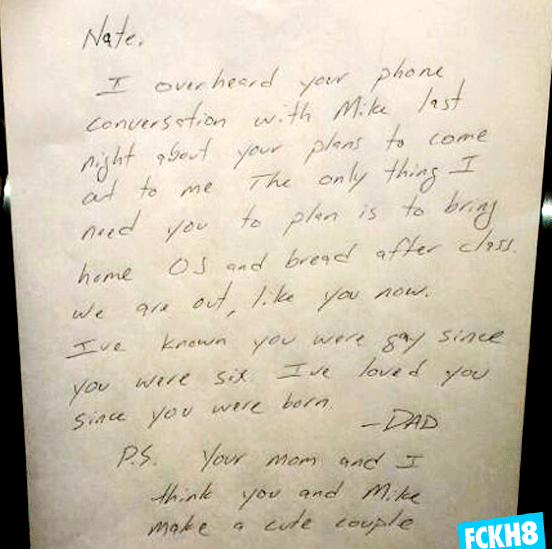 Nate,
I overheard your phone
conversation with Mike last
night about your plans to come
out to me The only thing I
need you to plan is to bring
home OJ and bread after class.
We are out, like you now.
I've known you were gay since
you were six. I've loved you
since you were born.
-DAD
P.S. Your mom and I
think you and Mike
make a cute couple
FCKH8